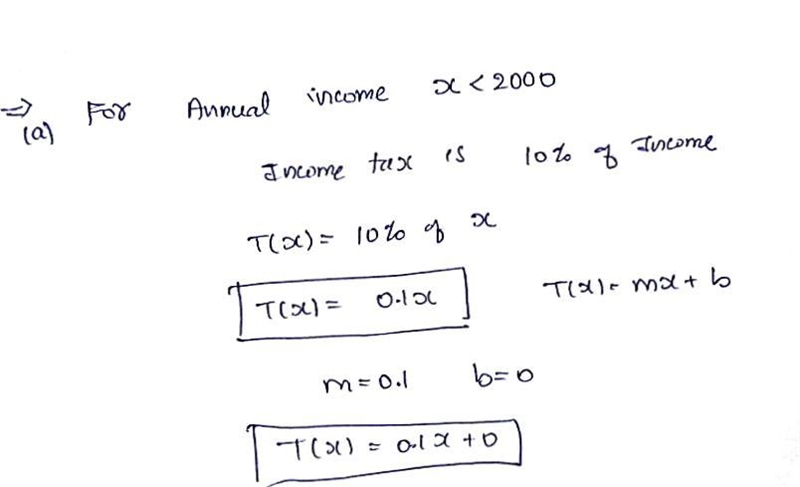 ⇒ For Annual income x < 2000
(a)
Income tax is 10% of Income
T(x) = 10% of x
T(x) = 0.1x T(x) = mx + b
m = 0.1 b = 0
T(x) = 0.1x + 0